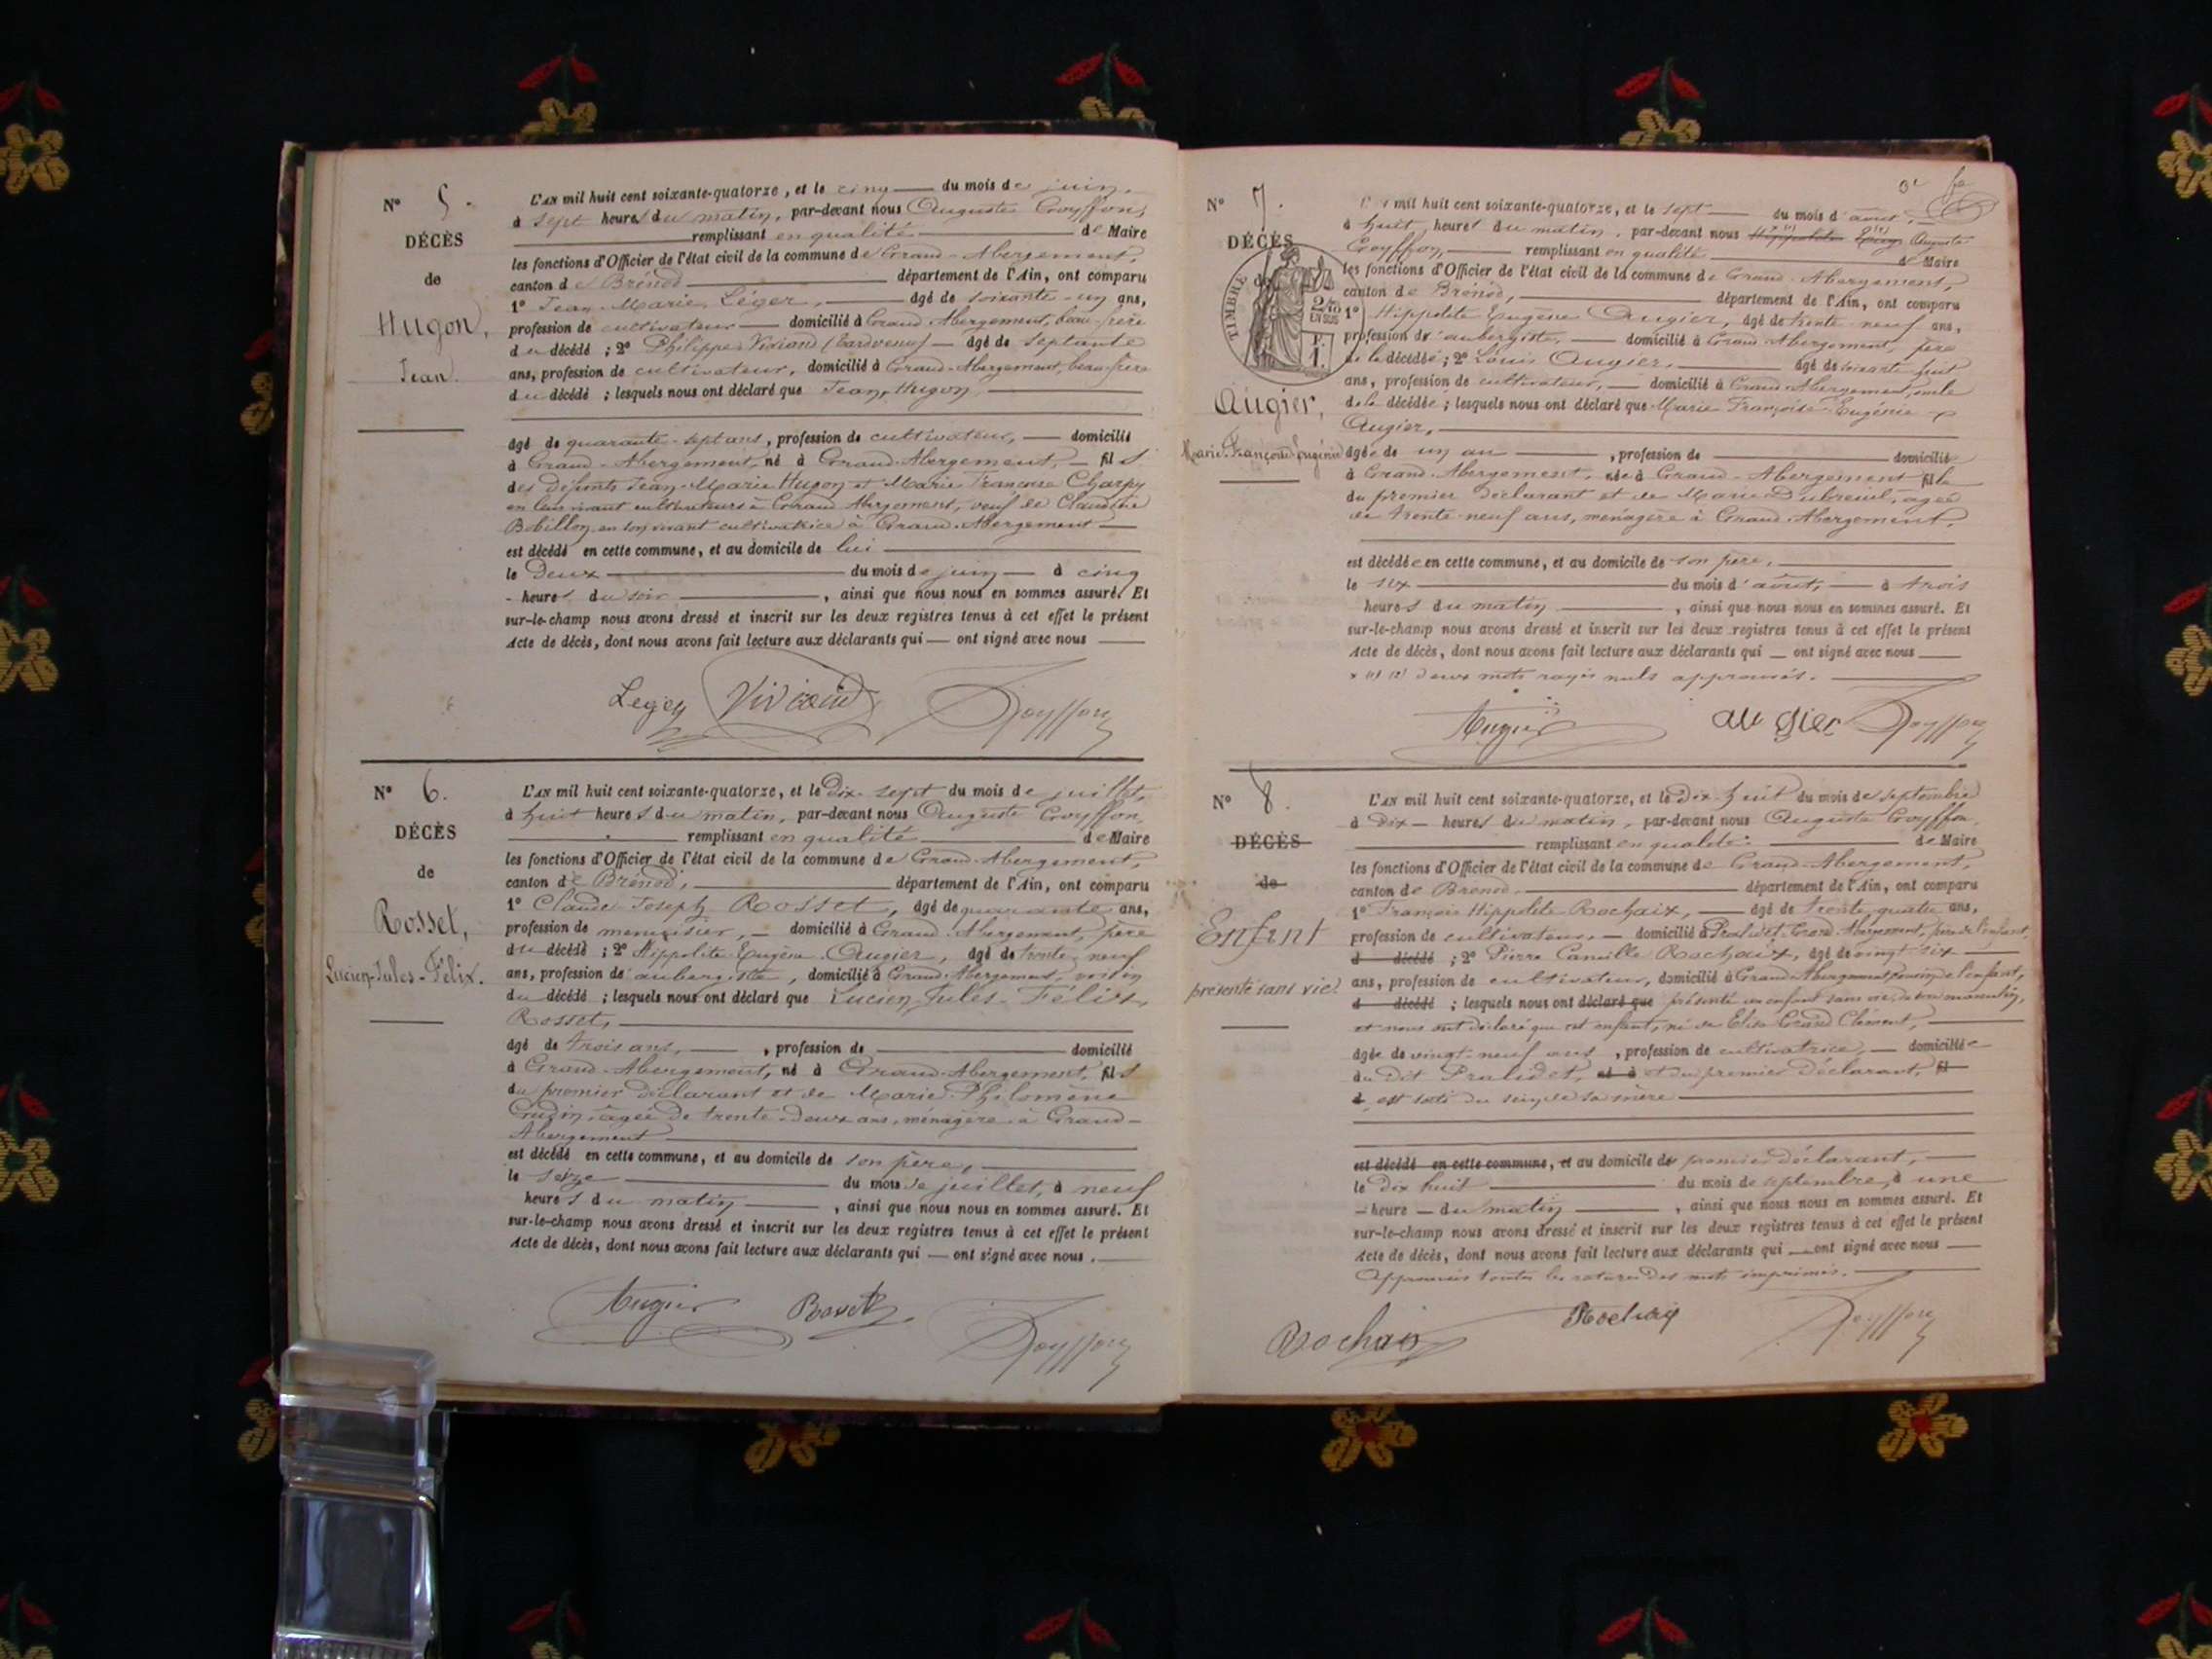 N° 5.
DÉCÈS
de
Hugon,
Jean.
L'AN mil huit cent soixante-quatorze, et le cinq du mois de juin,
à sept heures du matin, par-devant nous Auguste Goyffon,
remplissant en qualité de Maire
les fonctions d'Officier de l'état civil de la commune de Grand-Abergement,
canton de Brénod département de l'Ain, ont comparu
1° Jean-Marie Léger, âgé de soixante-un ans,
profession de cultivateur domicilié à Grand-Abergement, beau-frère
du décédé ; 2° Philippe Viviand âgé de septante
ans, profession de cultivateur, domicilié à Grand-Abergement, beau-frère
du décédé ; lesquels nous ont déclaré que Jean Hugon
âgé de quarante-sept ans, profession de cultivateur, domicilié
à Grand-Abergement, né à Grand-Abergement, fils
des défunts Jean-Marie Hugon et Marie Françoise Charpy
en leur vivant cultivateurs à Grand Abergement, veuf de Claudine
Bobillon en son vivant cultivatrice à Grand-Abergement
est décédé en cette commune, et au domicile de lui
le deux du mois de juin à cinq
heures du soir, ainsi que nous nous en sommes assuré. Et
sur-le-champ nous avons dressé et inscrit sur les deux registres tenus à cet effet le présent
Acte de décès, dont nous avons fait lecture aux déclarants qui ont signé avec nous
Leger Viviand Goyffon
N° 6.
DÉCÈS
de
Rosset,
Lucien-Jules-Félix.
L'AN mil huit cent soixante-quatorze, et le dix-sept du mois de juillet,
à huit heures du matin, par-devant nous Auguste Goyffon,
remplissant en qualité de Maire
les fonctions d'Officier de l'état civil de la commune de Grand-Abergement,
canton de Brénod, département de l'Ain, ont comparu
1° Claude-Joseph Rosset, âgé de quarante ans,
profession de menuisier, domicilié à Grand-Abergement, père
du décédé ; 2° Hippolite Eugène Augier, âgé de trente-neuf
ans, profession d'aubergiste, domicilié à Grand-Abergement, voisin
du décédé ; lesquels nous ont déclaré que Lucien-Jules-Félix
Rosset,
âgé de trois ans, profession de domicilié
à Grand-Abergement, né à Grand-Abergement, fils
du premier déclarant et de Marie-Philomène
âgée de trente-deux ans, ménagère à Grand-
Abergement
est décédé en cette commune, et au domicile de son père,
le seize du mois de juillet, à neuf
heures du matin, ainsi que nous nous en sommes assuré. Et
sur-le-champ nous avons dressé et inscrit sur les deux registres tenus à cet effet le présent
Acte de décès, dont nous avons fait lecture aux déclarants qui ont signé avec nous.
Augier Rosset Goyffon
N° 7.
DÉCÈS
de
TIMBRE
2/10
EN SUS
F.
1.
Augier,
Marie-Françoise-Eugénie
L'AN mil huit cent soixante-quatorze, et le sept du mois d'août,
à huit heures du matin, par-devant nous Hippolite Eugène Auguste
Goyffon, remplissant en qualité de Maire
les fonctions d'Officier de l'état civil de la commune de Grand-Abergement,
canton de Brénod, département de l'Ain, ont comparu
1° Hippolite Eugène Augier, âgé de trente-neuf ans,
profession d'aubergiste, domicilié à Grand-Abergement, père
de la décédée ; 2° Louis Augier, âgé de soixante-huit
ans, profession de cultivateur, domicilié à Grand-Abergement, oncle
de la décédée ; lesquels nous ont déclaré que Marie Françoise Eugénie
Augier,
âgée de un an, profession de domicilié
à Grand-Abergement, née à Grand-Abergement fille
du premier déclarant et de Marie Dubreuil, âgée
de trente-neuf ans, ménagère à Grand-Abergement.
est décédée en cette commune, et au domicile de son père,
le six du mois d'août, à trois
heures du matin, ainsi que nous nous en sommes assuré. Et
sur-le-champ nous avons dressé et inscrit sur les deux registres tenus à cet effet le présent
Acte de décès, dont nous avons fait lecture aux déclarants qui ont signé avec nous
x (1) (2) deux mots rayés nuls approuvés.
Augier augier Goyffon
N° 8.
DÉCÈS
de
Enfant
présenté sans vie.
L'AN mil huit cent soixante-quatorze, et le dix-huit du mois de septembre
à dix heures du matin, par-devant nous Auguste Goyffon,
remplissant en qualité de Maire
les fonctions d'Officier de l'état civil de la commune de Grand-Abergement,
canton de Brenod, département de l'Ain, ont comparu
1° François Hippolite Rochaix, âgé de trente-quatre ans,
profession de cultivateur, domicilié à Pralidet, Grand Abergement, père de l'enfant,
d décédé ; 2° Pierre Camille Rochaix, âgé de vingt-six
ans, profession de cultivateur, domicilié à Grand-Abergement, cousin de l'enfant,
d décédé ; lesquels nous ont déclaré que présenté un enfant sans vie, du sexe masculin,
et nous ont déclaré que cet enfant, né de Elisa Grand Clément,
âgée de vingt-neuf ans, profession de cultivatrice, domiciliée
du dit Pralidet, né à et du premier déclarant, fil
d est sorti du sein de sa mère
est décédé en cette commune, et au domicile du premier déclarant,
le dix huit du mois de septembre, à une
heure du matin, ainsi que nous nous en sommes assuré. Et
sur-le-champ nous avons dressé et inscrit sur les deux registres tenus à cet effet le présent
Acte de décès, dont nous avons fait lecture aux déclarants qui ont signé avec nous
Approuvés toutes les ratures des mots imprimés.
Rochaix Rochaix Goyffon